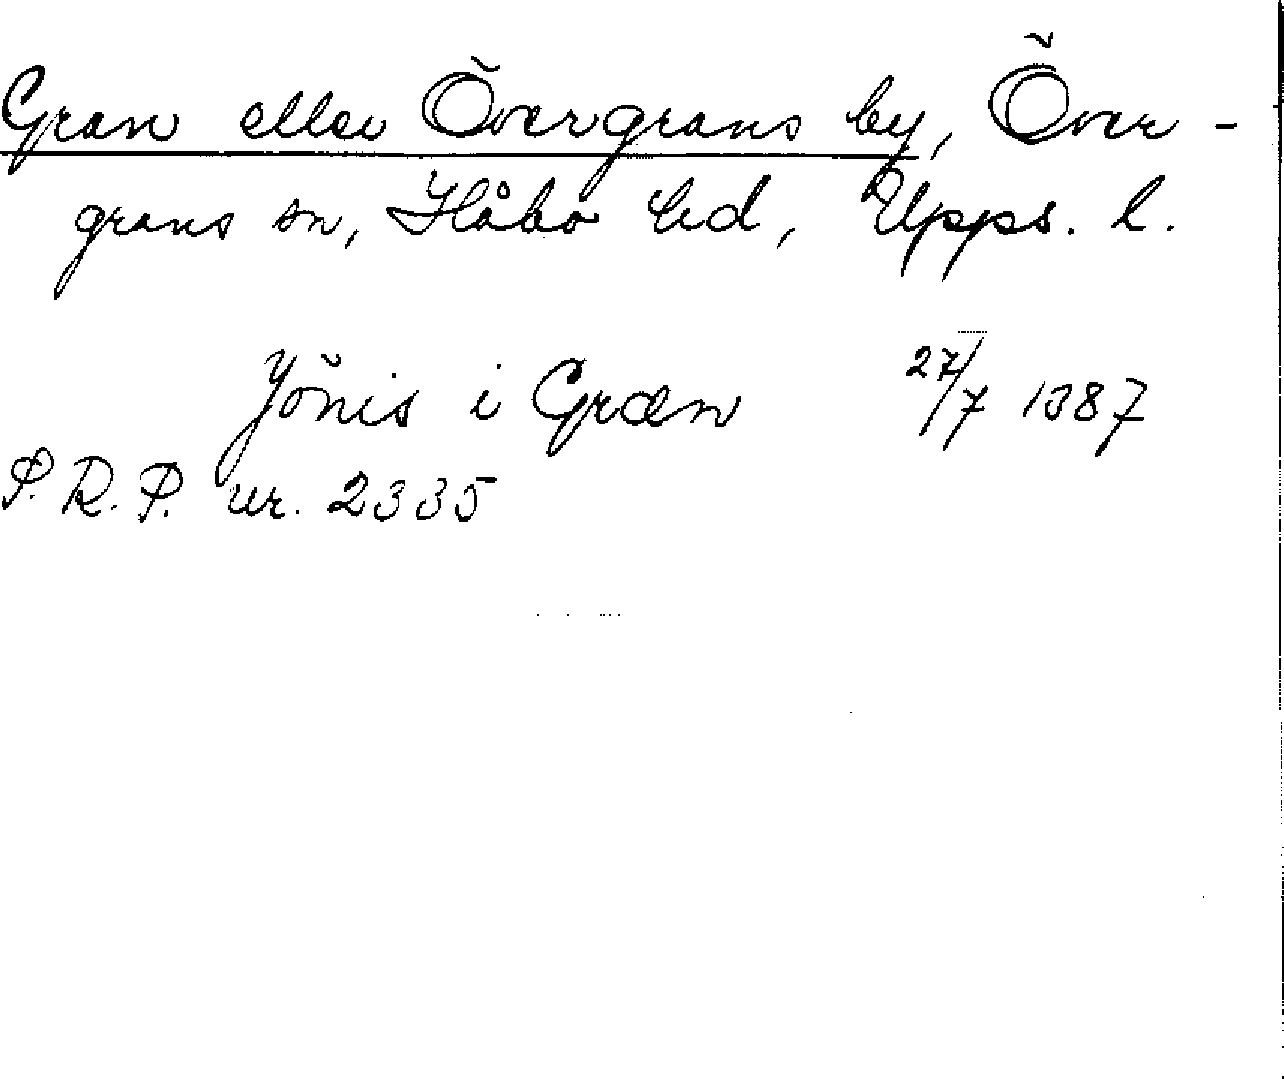 Gran eller Övergrans by, Över-
grans sn, Håbo hd, Upps. l.
Jönis i Græn 27/7 1387
P.R.P. nr. 2335